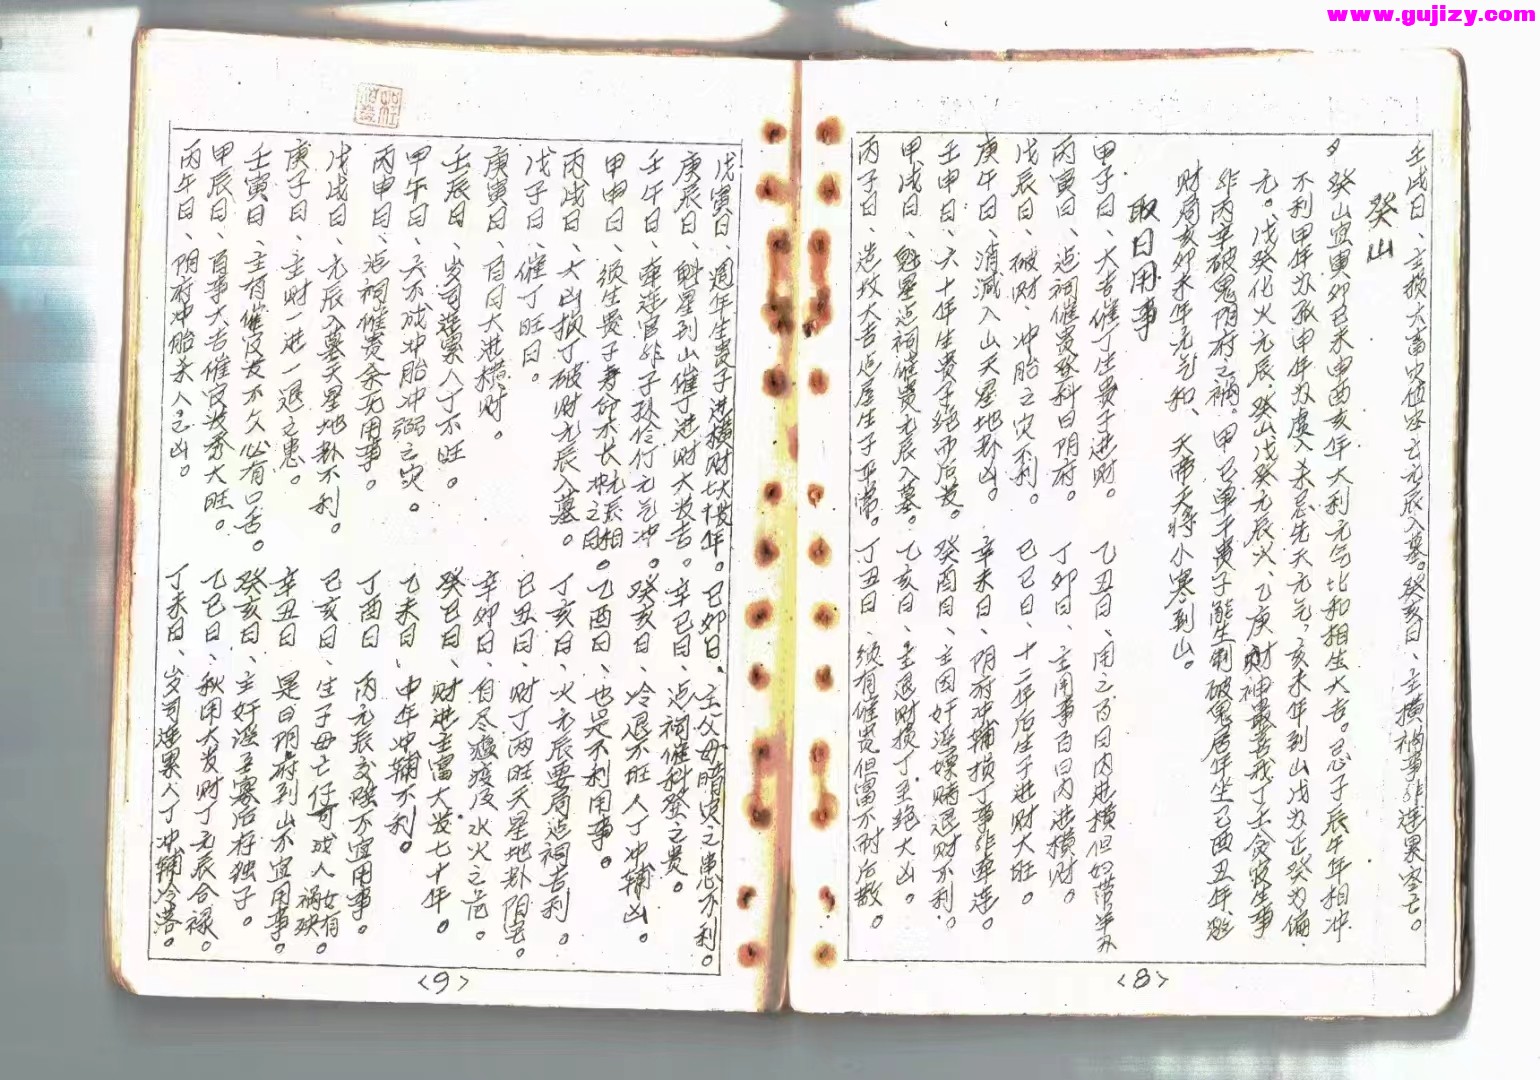 www.gujizy.com
壬戌日、主损六畜血值空亡元辰入墓。癸亥日、主横祸事非连累空亡。
癸山
癸山宜寅卯巳未申酉亥年大利元气比和相生大吉。忌子辰午年相冲
不利甲年为孤甲年为虚人杀忌先天元气，亥未年到山戊为正癸为偏
元。戊癸化火元辰，癸山戊癸元辰火，乙庚财甲最苦戒丁壬贪官生事
财神
非丙辛破鬼阴府之祸。甲己单干贵子能生制破鬼居年生己酉丑年
财局亥卯未年元气和、天帝天将小寒到山。
取日用事
甲子日、大吉催丁生贵子进财。乙丑日、用之百日内进横但妨带半
丙寅日、造祠催贵登科日阴府。丁卯日、主用事百日内进横财。
戊辰日、破财、冲胎之灾不利。己巳日、十二年后生子进财大旺。
庚午日、消减入山天星地卦凶。辛未日、阴府冲辅损丁事非牵连。
壬申日、六十年生贵子绝而后发。癸酉日、主因奸淫嫖赌退财不利。
甲戌日、魁星造祠催贵元辰入墓。乙亥日、主退财损丁至绝大凶。
丙子日、造坟大吉造屋生子平常。丁丑日、须有催贵但富不耐后散。
<8>
戊寅日、週年生贵子进横财七拾年。己卯日、主父母暗灾之患不利。
庚辰日、魁星到山催丁进财大发吉。辛巳日、造祠催科登之贵。
壬午日、牵连官非子孙伶仃元气冲。癸亥日、冷退不旺人丁冲辅凶。
甲申日、须生贵子寿命不长冲之用。乙酉日、也是不利用事。
元辰相
丙戌日、大凶损丁破财元辰入墓。丁亥日、火元辰要局造祠吉利。
戊子日、催丁旺日。己丑日、财丁两旺天星地卦阴宅。
庚寅日、百日大进横财。辛卯日、自尽瘟疫及水火之危。
壬辰日、岁司连累人丁不旺。癸巳日、财进主富大发七十年。
甲午日、天不成冲胎冲弱之灾。乙未日、申年冲辅不利。
丙申日、造祠催贵余无用事。丁酉日、丙元辰交雄不宜用事。
戊戌日、元辰入墓天星地卦不利。己亥日、生子母亡仔可成人女有
祸殃。
庚子日、主财一进一退之患。辛丑日、是日阴府到山不宜用事。
壬寅日、主有催官发不久必有口舌。癸亥日、主奸淫至寡后存独子。
甲辰日、百事大吉催官发秀大旺。乙巳日、秋用大发财丁元辰合禄。
丙午日、阴府冲胎杀人己凶。丁未日、岁司连累人丁冲辅冷落。
<9>